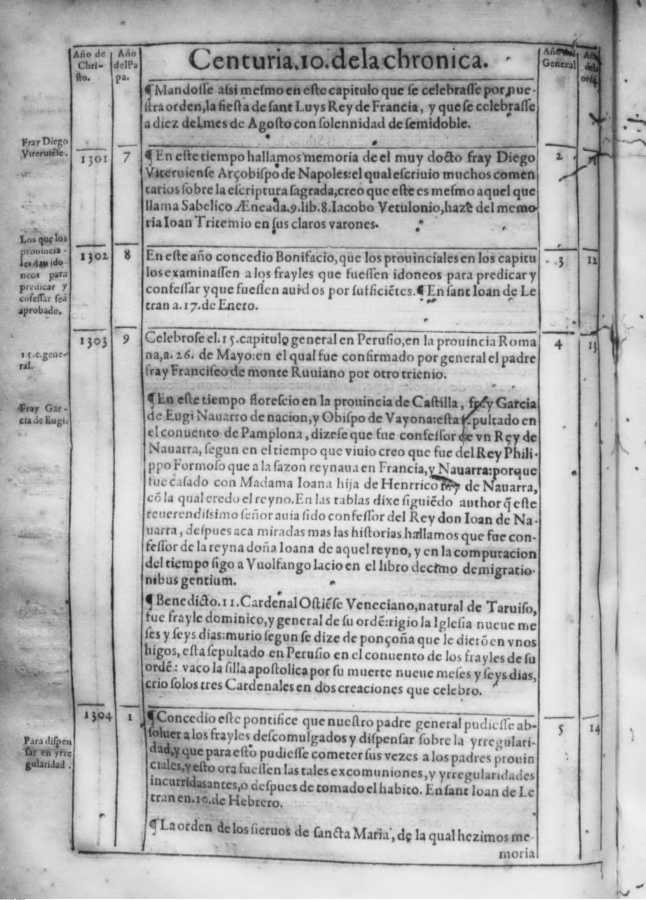 Año de Chri- sto.
Año del Pa pa.
Centuria.10.dela chronica.
Año del General
Año dela ordē
¶ Mandosse assi mesmo en este capitulo que se celebrasse por nue-
stra orden, la fiesta de sant Luys Rey de Francia, y que se celebrasse
a diez del mes de Agosto con solennidad de semidoble.
Fray Diego
Viteruiēse.
1301 7 ¶ En este tiempo hallamos memoria de el muy docto fray Diego 2
Viteruiense Arçobispo de Napoles: el qual escriuio muchos comen
tarios sobre la escriptura sagrada, creo que este es mesmo aquel que
llama Sabelico Æneada.9.lib.8. Iacobo Vetulonio, haze del memo
ria Ioan Tritemio en sus claros varones.
Los que los
prouincia-
les dan ido
neos para
predicar y
cōfessar seā
aprobado.
1302 8 En este año concedio Bonifacio, que los prouinciales en los capitu 3 12
los examinassen a los frayles que fuessen idoneos para predicar y
confessar y que fuessen auidos por sufficiētes. ¶ En sant Ioan de Le
tran a.17.de Enero.
15.c.gene-
ral.
1303 9 Celebrose el.15.capitulo general en Perusio, en la prouincia Roma 4 13
na, a.26. de Mayo: en el qual fue confirmado por general el padre
fray Francisco de monte Ruuiano por otro trienio.
Fray Gar-
cia de Eugi.
¶ En este tiempo florescio en la prouincia de Castilla, fray Garcia
de Eugi Nauarro de nacion, y Obispo de Vayona: esta sepultado en
el conuento de Pamplona, dizese que fue confessor de vn Rey de
Nauarra, segun en el tiempo que viuio creo que fue del Rey Phili-
ppo Formoso que a la sazon reynaua en Francia, y Nauarra: porque
fue casado con Madama Ioana hija de Henrrico Rey de Nauarra,
cō la qual eredo el reyno. En las tablas dixe siguiēdo author q̄ este
reuerendissimo señor auia sido confessor del Rey don Ioan de Na-
uarra, despues aca miradas mas las historias hallamos que fue con-
fessor de la reyna doña Ioana de aquel reyno, y en la computacion
del tiempo sigo a Vuolfango lacio en el libro decimo demigratio-
nibus gentium.
¶ Benedicto.11. Cardenal Ostiēse Veneciano, natural de Taruiso,
fue frayle dominico, y general de su ordē: rigio la Iglesia nueue me
ses y seys dias: murio segun se dize de ponçoña que le dierō en vnos
higos, esta sepultado en Perusio en el conuento de los frayles de su
ordē: vaco la silla apostolica por su muerte nueue meses y seys dias,
crio solos tres Cardenales en dos creaciones que celebro.
Para dispen
sar en yrre
gularidad.
1304 1 ¶ Concedio este pontifice que nuestro padre general pudiesse ab- 5 14
soluer a los frayles descomulgados y dispensar sobre la yrregulari-
dad, y que para esto pudiesse cometer sus vezes a los padres prouin
ciales, y esto ora fuessen las tales excomuniones, y yrregularidades
incurridas antes, o despues de tomado el habito. En sant Ioan de Le
tran en.10.de Hebrero.
¶ La orden de los sieruos de sancta Maria, de la qual hezimos me-
moria